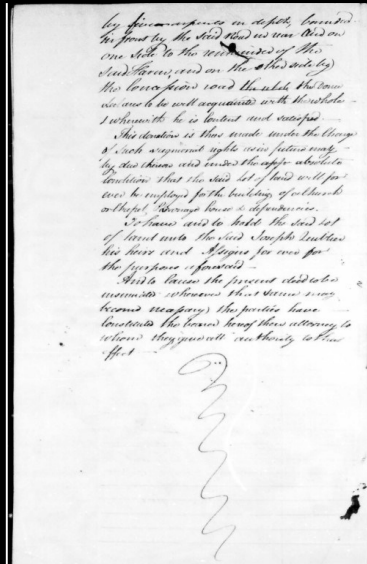 by five arpents in depth, bounded
in front by the said road in rear and on
one side to the remainder of the
said Farm, and on the other side by
the Concession road the whole the Donee
declares to be well acquainted with the whole
wherewith he is content and satisfied
This donation is thus made under the Charge
of such seigneurial rights as in future may
be due thereon and under the express absolute
Condition that the said lot of land will for
ever be employed for the building of a church
or chapel, Parsonage house & dependencies.
To have and to hold the said lot
of land unto the said Joseph
his heirs and Assigns for ever for
the purposes aforesaid
And to cause the present deed to be
insinuated wherever that same may
become necessary, the parties have
Constituted the bearer hereof their attorney to
whom they give all authority to that
effect